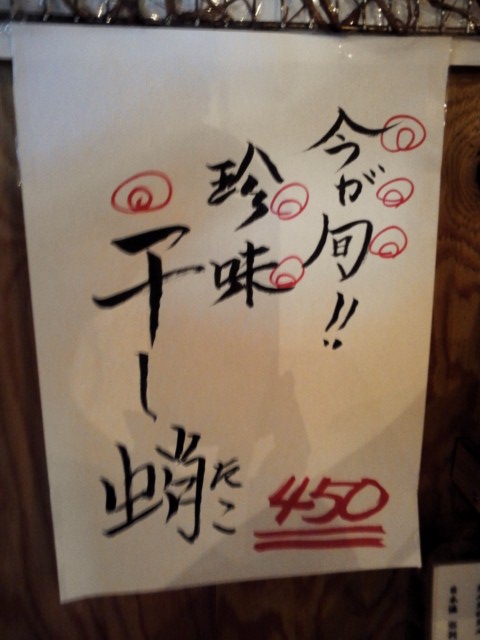 今が旬!!
珍味
干し蛸
たこ
450